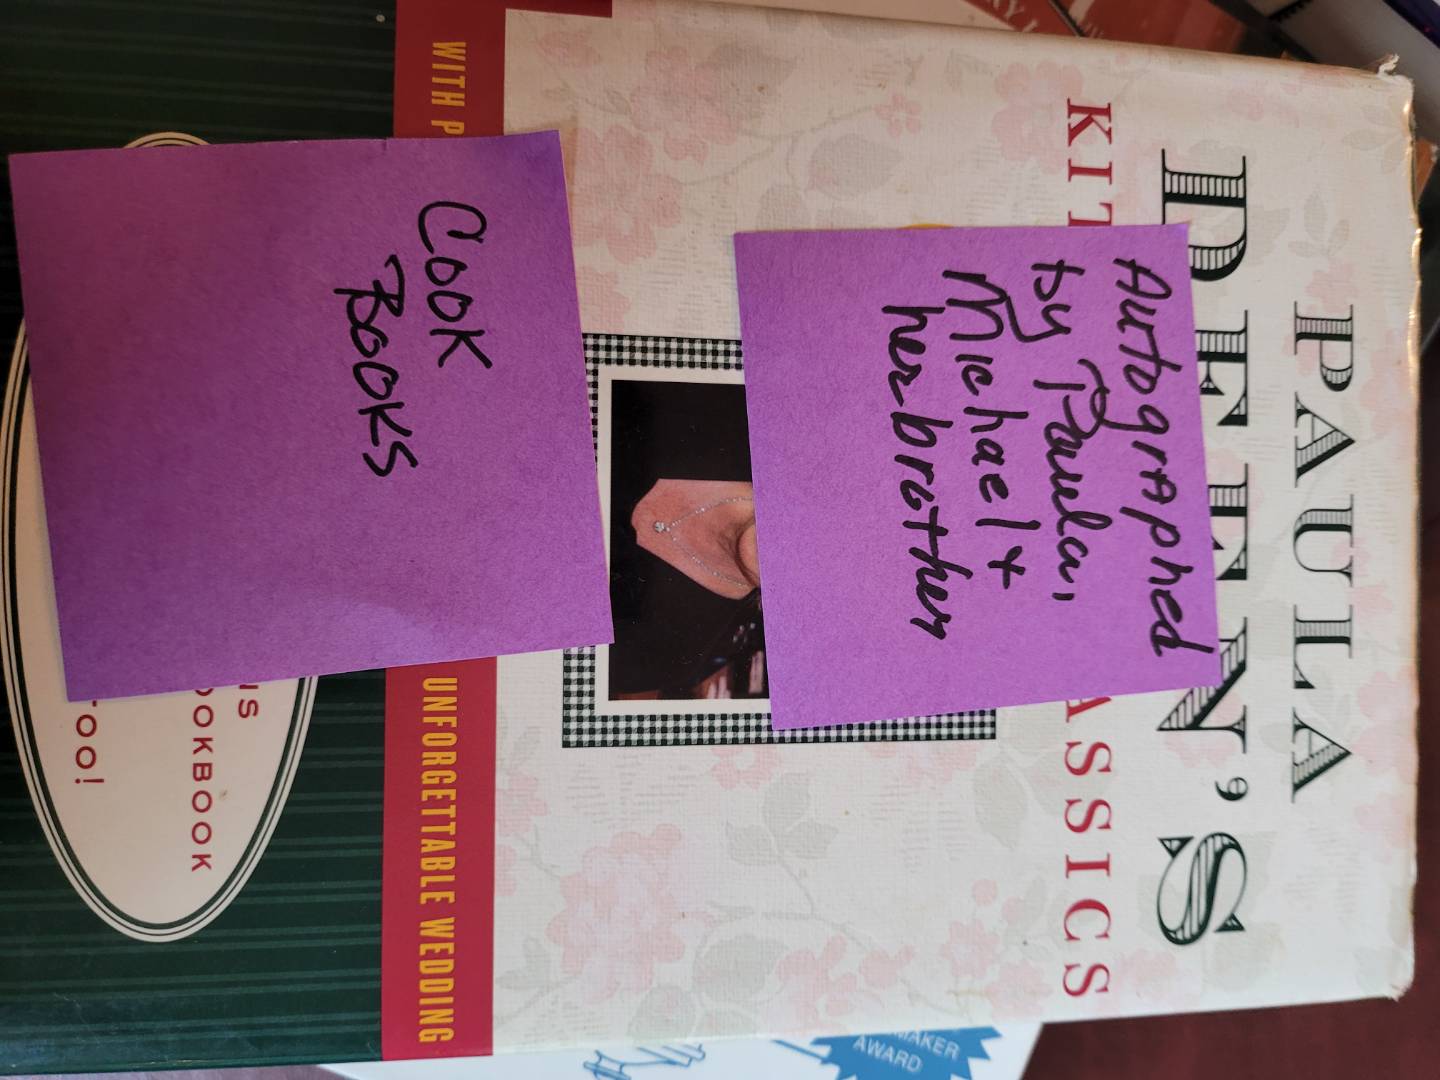 PAULA
DEEN'S
KIT ASSICS
Autographed
by Paula,
Michael +
her brother
WITH P UNFORGETTABLE WEDDING
Cook
Books
IS
OOKBOOK
TOO!
MAKER
AWARD